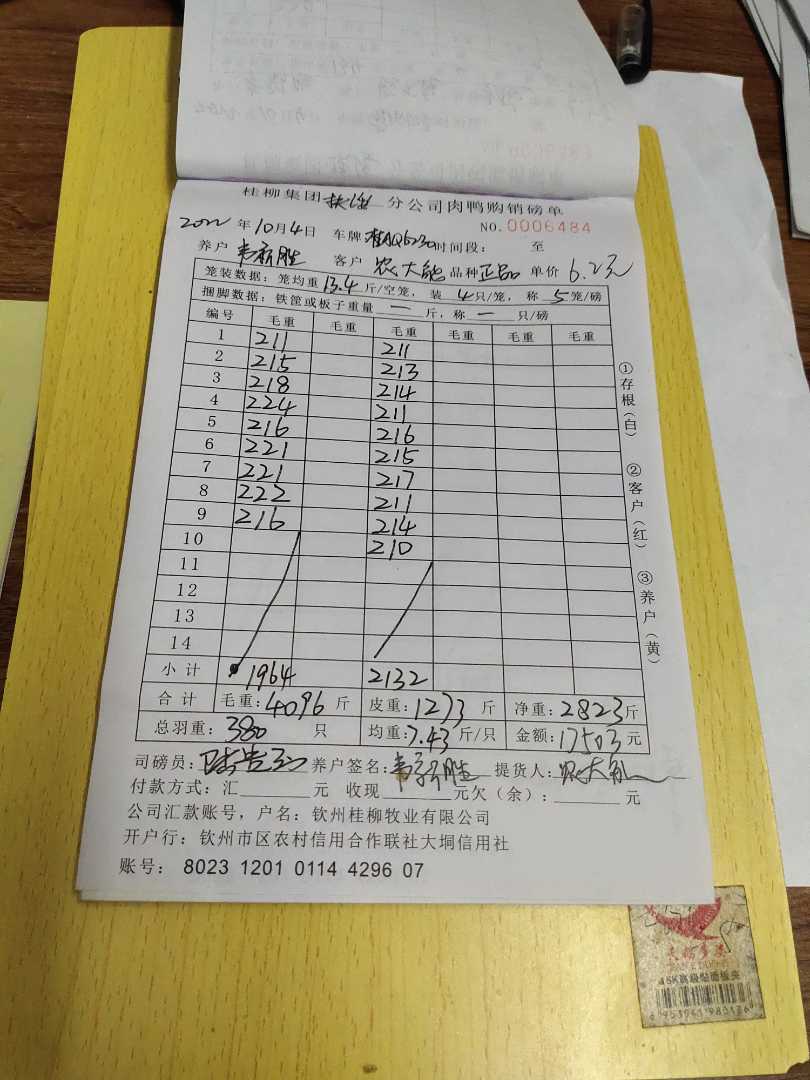 桂柳集团扶绥分公司肉鸭购销磅单
NO.0006484
2022年10月4日 车牌桂AQ6230时间段： 至
养户 韦新胜 客户 农大能 品种正品 单价 6.2元
笼装数据：笼均重13.4斤/空笼，装 4只/笼，称 5笼/磅
捆脚数据：铁筐或板子重量 一 斤，称 一 只/磅
编号 毛重 毛重 毛重 毛重 毛重 毛重
1 211 211
2 215 213
3 218 214
4 224 211
5 216 216
6 221 215
7 221 217
8 222 211
9 216 214
10 210
11
12
13
14
小计 1964 2132
合计 毛重：4096 斤 皮重：1273 斤 净重：2823斤
总羽重：380 只 均重：7.43斤/只 金额：17503元
司磅员： 养户签名：韦新胜 提货人：农大能
付款方式：汇 元 收现 元欠（余）： 元
公司汇款账号，户名：钦州桂柳牧业有限公司
开户行：钦州市区农村信用合作联社大垌信用社
账号： 8023 1201 0114 4296 07
①存根（白）
②客户（红）
③养户（黄）